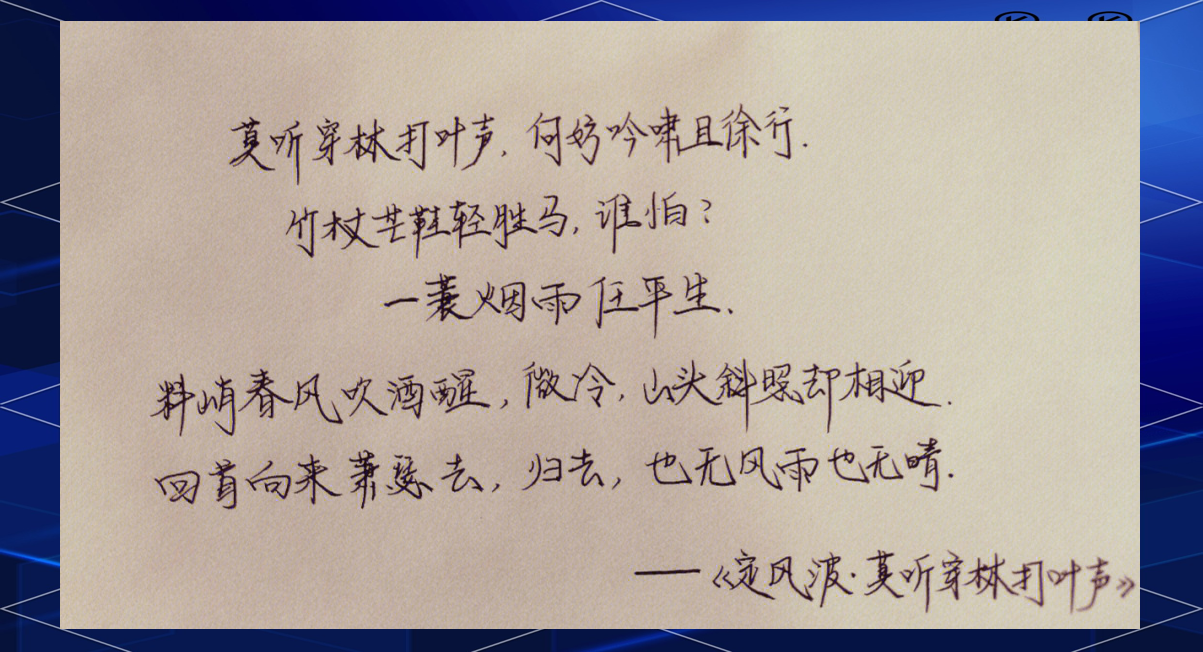 莫听穿林打叶声,何妨吟啸且徐行.
竹杖芒鞋轻胜马,谁怕?
一蓑烟雨任平生.
料峭春风吹酒醒,微冷,山头斜照却相迎.
回首向来萧瑟去,归去,也无风雨也无晴.
——《定风波·莫听穿林打叶声》